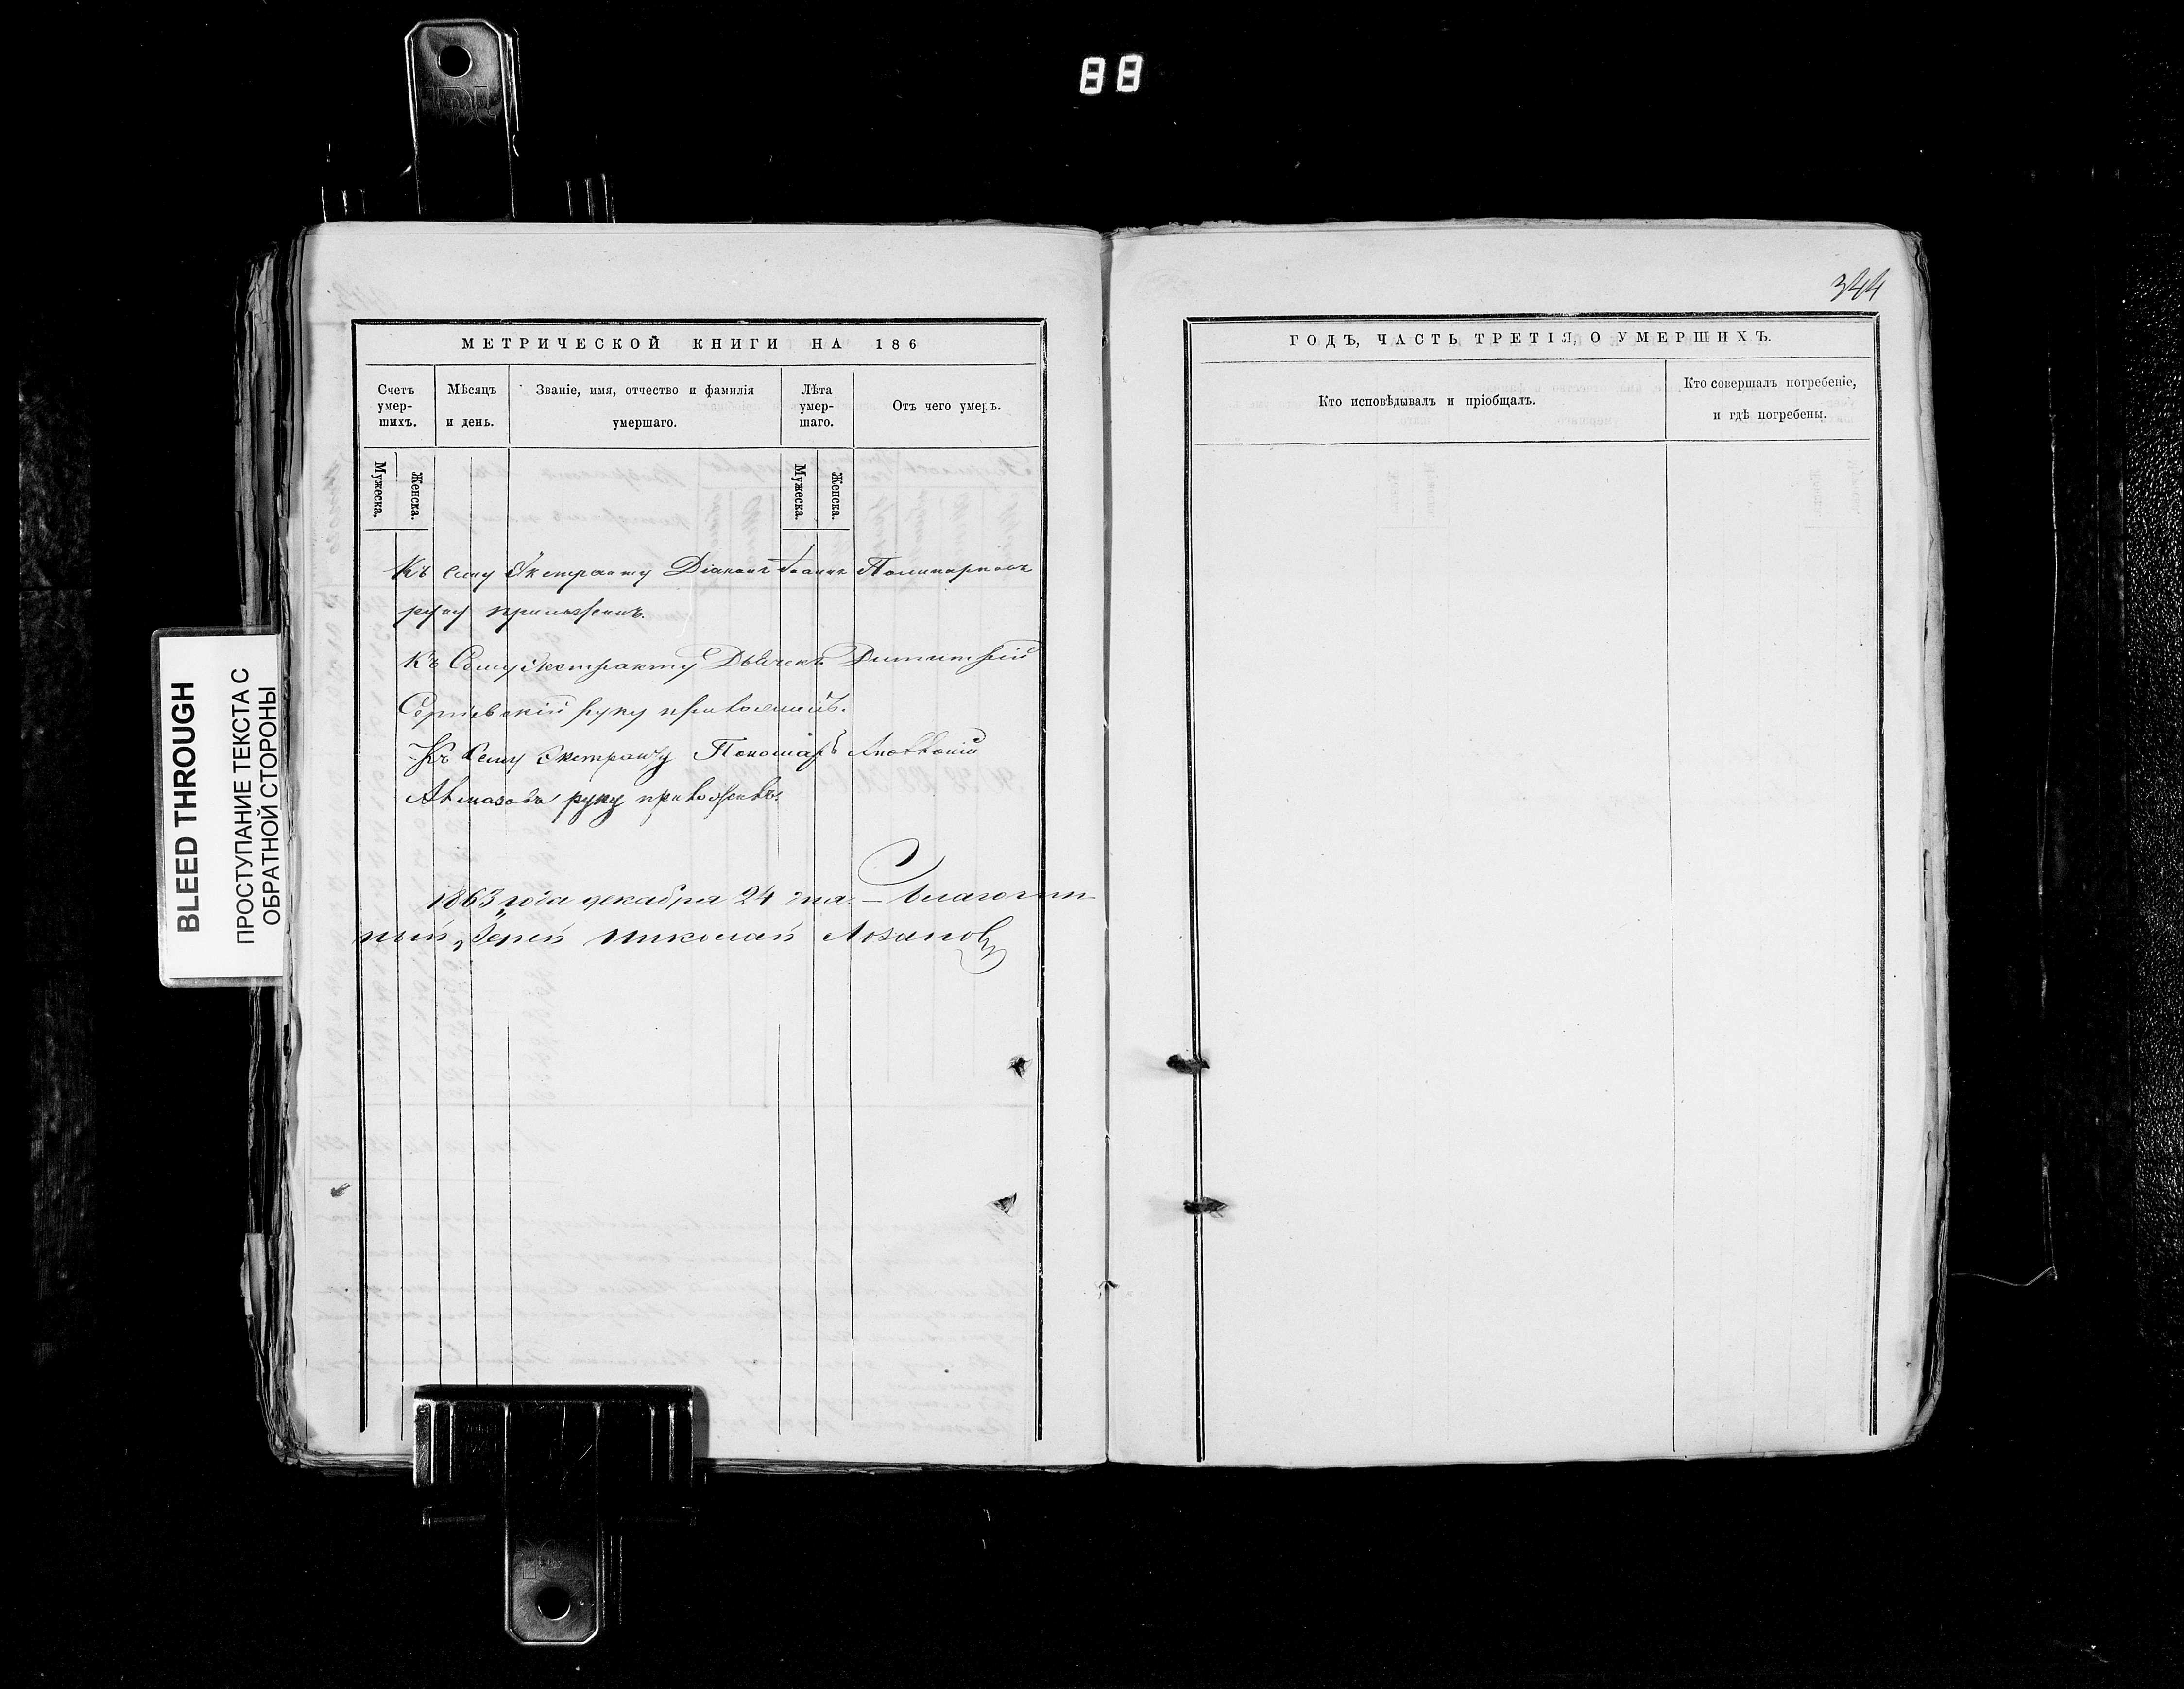 88
BLEED THROUGH
ПРОСТУПАНИЕ ТЕКСТА С
ОБРАТНОЙ СТОРОНЫ
МЕТРИЧЕСКОЙ КНИГИ НА 186
Счетъ
умер-
шихъ.
Мѣсяцъ
и день.
Званіе, имя, отчество и фамилія
умершаго.
Лѣта
умер-
шаго.
Отъ чего умеръ.
Мужеска.
Женска.
Мужеска.
Женска.
Къ сему Экстракту Діаконъ Іоаннъ Поликарповъ
руку приложилъ.
Къ Сему Экстракту Дьячекъ Димитрій
Сергіевскій руку приложилъ.
Къ Сему Экстракту Пономарь
Алмазовъ руку приложилъ.
1863 года декабря 24 дня. – Благочин-
ный, Іерей Николай Лозановъ
344
ГОДЪ, ЧАСТЬ ТРЕТІЯ, О УМЕРШИХЪ.
Кто исповѣдывалъ и пріобщалъ.
Кто совершалъ погребеніе,
и гдѣ погребены.